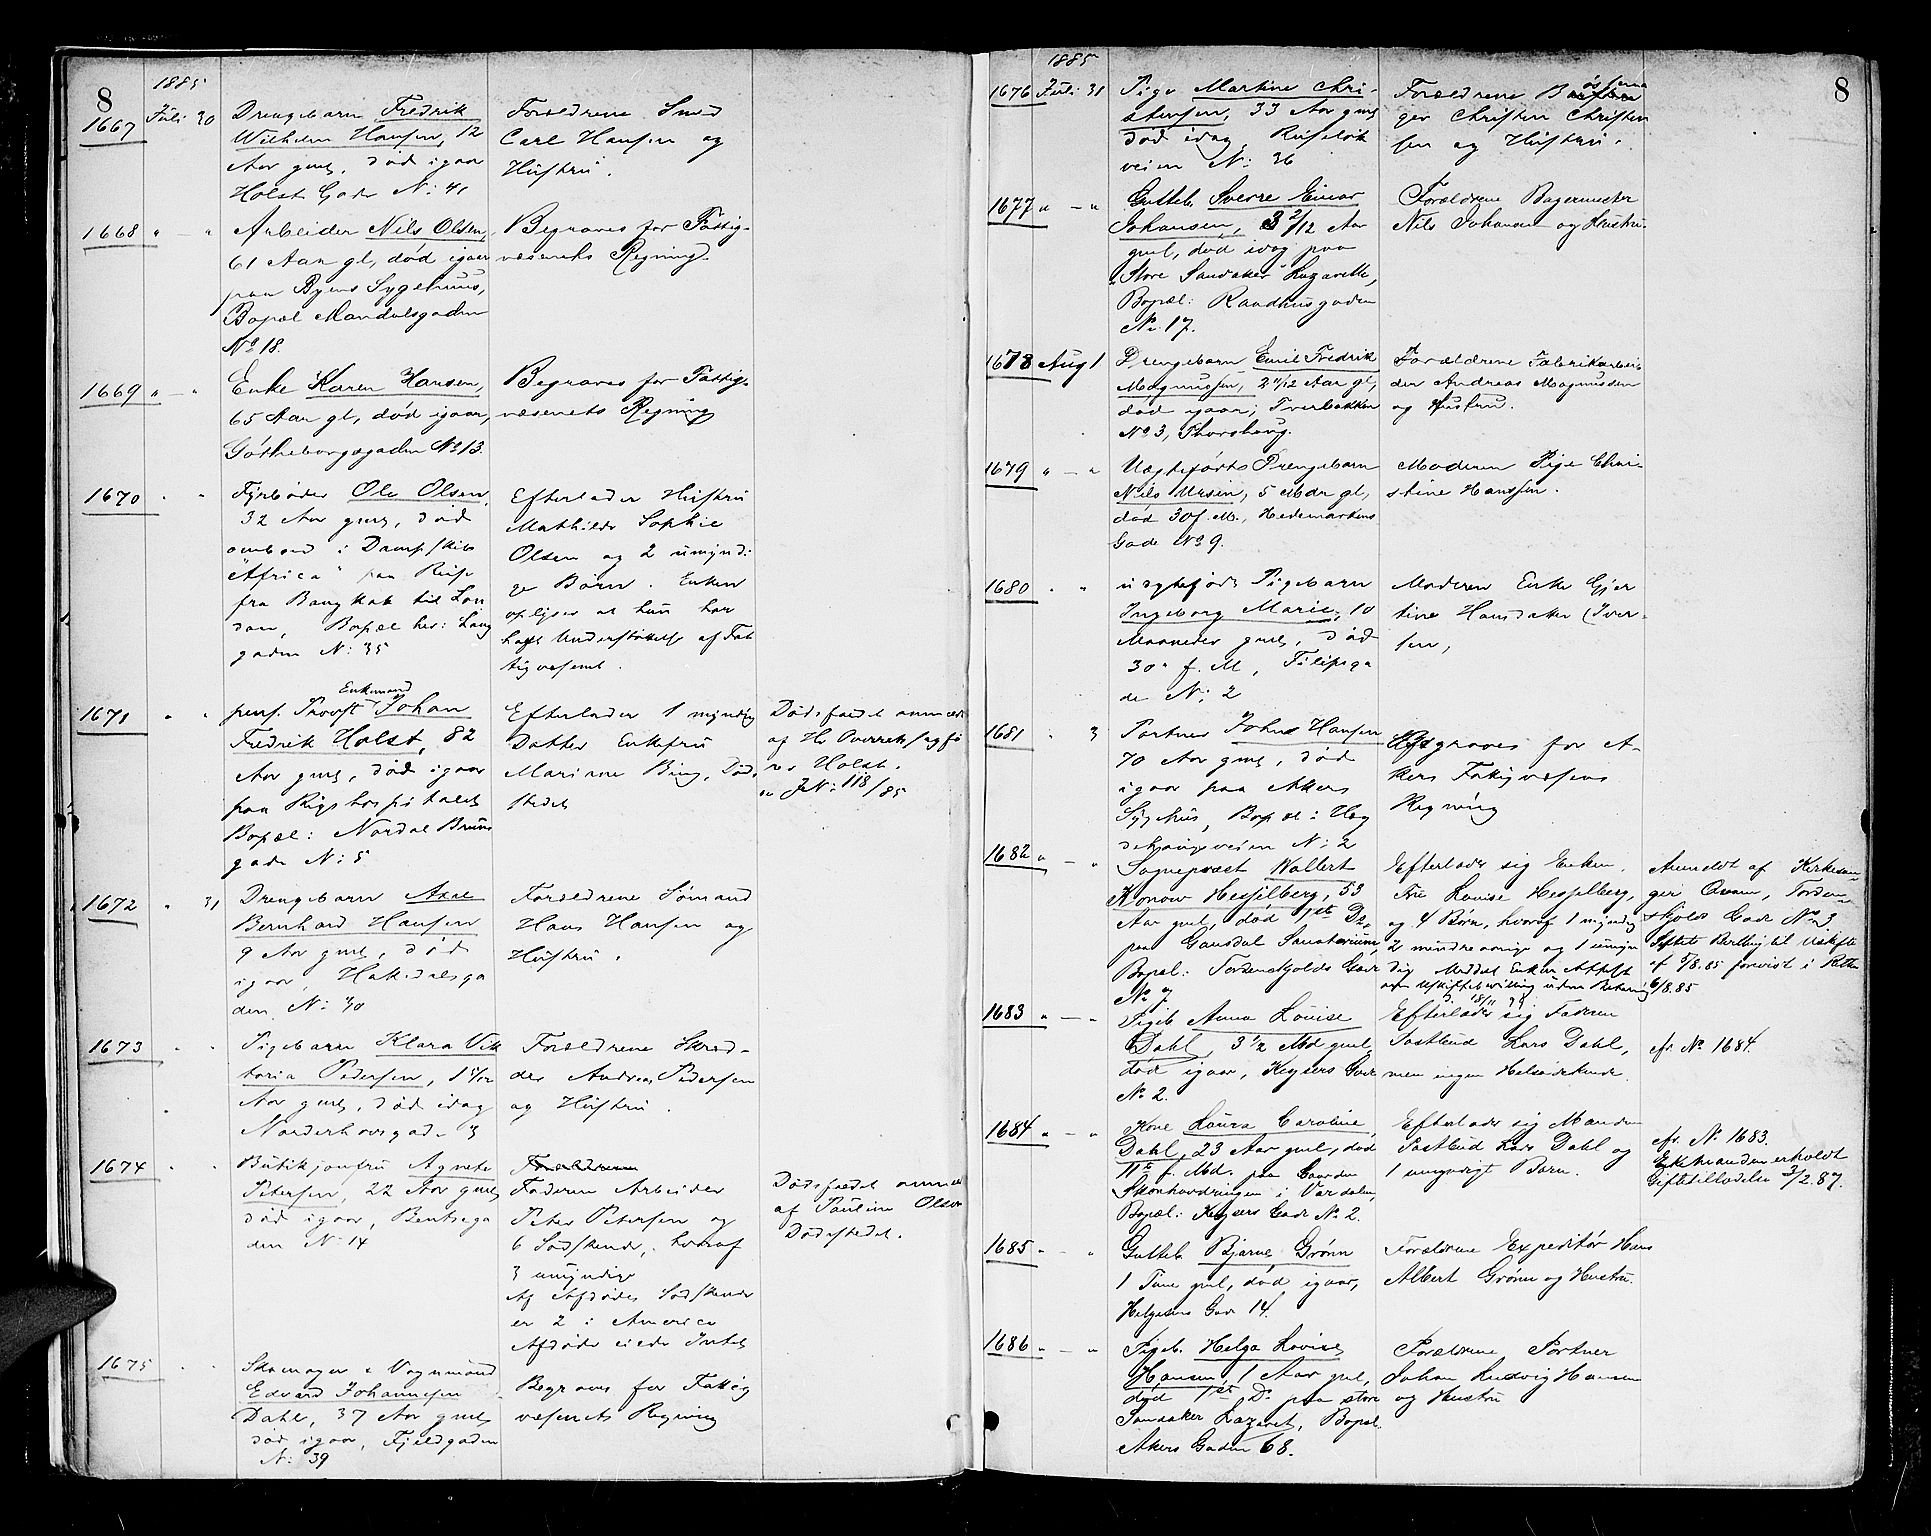 8
1885
1667 Juli 30 Drengebarn Fredrik
Wilhelm Hansen, 12
Aar gml, død igaar
Holst Gade N: 41
Forældrene Smed
Carl Hansen og
Hustru.
1668 " — " Arbeider Nils Olsen,
61 Aar gl, død igaar
paa Byens Sygehuus,
Bopæl Mandalsgaden
No 18.
Begraves for Fattig-
væsenets Regning.
1669 " — " Enke Karen Hansen,
65 Aar gl, død igaar,
Götheborgsgaden No 13.
Begraves for Fattig-
væsenets Regning
1670 " " Fyrbøder Ole Olsen,
32 Aar gml, død
ombord i Dampskibet
"Africa" paa Reise
fra Bangkok til Lon
don, Bopæl her: Lang
gaden N: 35
Efterlader Hustru
Mathilde Sophie
Olsen og 2 umyndi-
ge Børn. Enken
oplyser at hun har
havt Understøttelse af Fat
tigvæsenet.
1671 " " pens. Provst Enkemand Johan
Fredrik Holst, 82
Aar gml, død igaar
paa Rigshospitalet
Bopæl: Nordal Bruns
gade N: 5
Efterlader 1 myndig
Datter Enkefru
Marianne Bing, Død-
stedet
Dødsfaldet anmeldt
af Hr Overretssagfø
rer Holst.
cfr JN: 118/85
1672 " 31 Drengebarn Axel
Bernhard Hansen
9 Aar gml, død
igaar, Hakedalsga
den N: 30
Forældrene Sømand
Hans Hansen og
Hustru.
1673 " " Pigebarn Klara Vik
toria Pedersen, 1 1/12
Aar gml, død idag
Norderhovsgade 3
Forældrene Skræd-
der Andreas Pedersen
og Hustru.
1674 " " Butikjomfru Agnete
Petersen, 22 Aar gml,
død igaar, Bentsega
den N: 14
Forældrene
Faderen Arbeider
Peter Petersen og
6 Sødskende, hvoraf
3 umyndige
Af Afdødes Sødskende
er 2 i America
Afdøde eiede Intet
Dødsfaldet anmeldt
af Pauline Olsen
Dødsstedet.
1675 " " Skomager & Vognmand
Edvard Johannesen
Dahl, 37 Aar gml,
død igaar, Fjeldgaden
N: 39
Begraves for Fattig
væsenets Regning
8
1885
1676 Juli 31 Pige Martine Chri-
stensen, 33 Aar gml
død idag, Ruseløk
veien N: 36
Forældrene
ger Christen Christen
sen og Hustru.
1677 " — " Gutteb. Sverre Einar
Johansen, 3 2/12 Aar
gml, død idag paa
Store Sandaker Lazareth,
Bopæl: Raadhusgaden
No 17.
Forældrene Bagermester
Nils Johansen og Hustru.
1678 Aug 1 Drengebarn Emil Fredrik
Magnussen, 2 11/12 Aar gl,
død igaar, Tverbakken
No 3, Thorshaug.
Forældrene Fabrikarbei-
der Andreas Magnussen
og Hustru.
1679 " — " Uægtefødt Drengebarn
Nils Ursin, 5 Mdr gl,
død 30 f. M., Hedemarkens
Gade No 9.
Moderen Pige Chri-
stine Hanssen.
1680 " " uægtefødt Pigebarn
Ingeborg Marie, 10
Maaneder gml, død
30' f. M, Filipsga
de N: 2
Moderen Enke Gjer
tine Handaker (Iver-
sen,
1681 " 3 Portner Johns Hansen
70 Aar gml, død
igaar paa Akers
Sygehus, Bopæl: Hæg
dehaugsveien N: 2
Begraves for A-
kers Fattigvæsens
Regning
1682 " — " Sogneprest Wallert
Konow Hesselberg, 53
Aar gml, død 1st Ds,
paa Gausdal Sanatorium,
Bopæl: Tordenskjolds Gade
No 7
Efterlader sig Enken,
Fru Louise Hesselberg,
og 4 Børn, hvoraf 1 myndig
2 mindreaarige og 1 umyn
dig. Meddelt Enken Attest
om Uskiftebevilling uden
18/11 99
Anmeldt af Kirkesan-
ger Qvam, Torden-
skjolds Gade No 3.
til Uskifte
af 5/8.85 forevist i Retten
6/8.85
1683 " — " Pigeb. Anna Louise
Dahl, 3 1/2 Md gml,
død igaar, Keysers Gade
No 2.
Efterlader sig Faderen
Postbud Lars Dahl,
men ingen Helsødskende.
cfr. No 1684.
1684 " — " Kone Laura Caroline
Dahl, 23 Aar gml, død
11te f. Md. paa Gaarden
i Værdalen,
Bopæl: Keysers Gade No 2.
Efterlader sig Manden
Postbud Lars Dahl og
1 umyndigt Barn.
cfr. No 1683.
Enkemanden erholdt
Giftetilladelse 3/2.87.
1685 " — " Gutteb. Bjarne Grønn
1 Time gml, død igaar,
Helgesens Gade 14.
Forældrene Expeditør Hans
Albert Grønn og Hustru.
1686 " — " Pigeb. Helga Lovise
Hansen, 1 Aar gml,
død 1st Ds paa store
Sandaker Lazaret, Bopæl.
Akers Gaden 68.
Forældrene Portner
Johan Ludvig Hansen
og Hustru